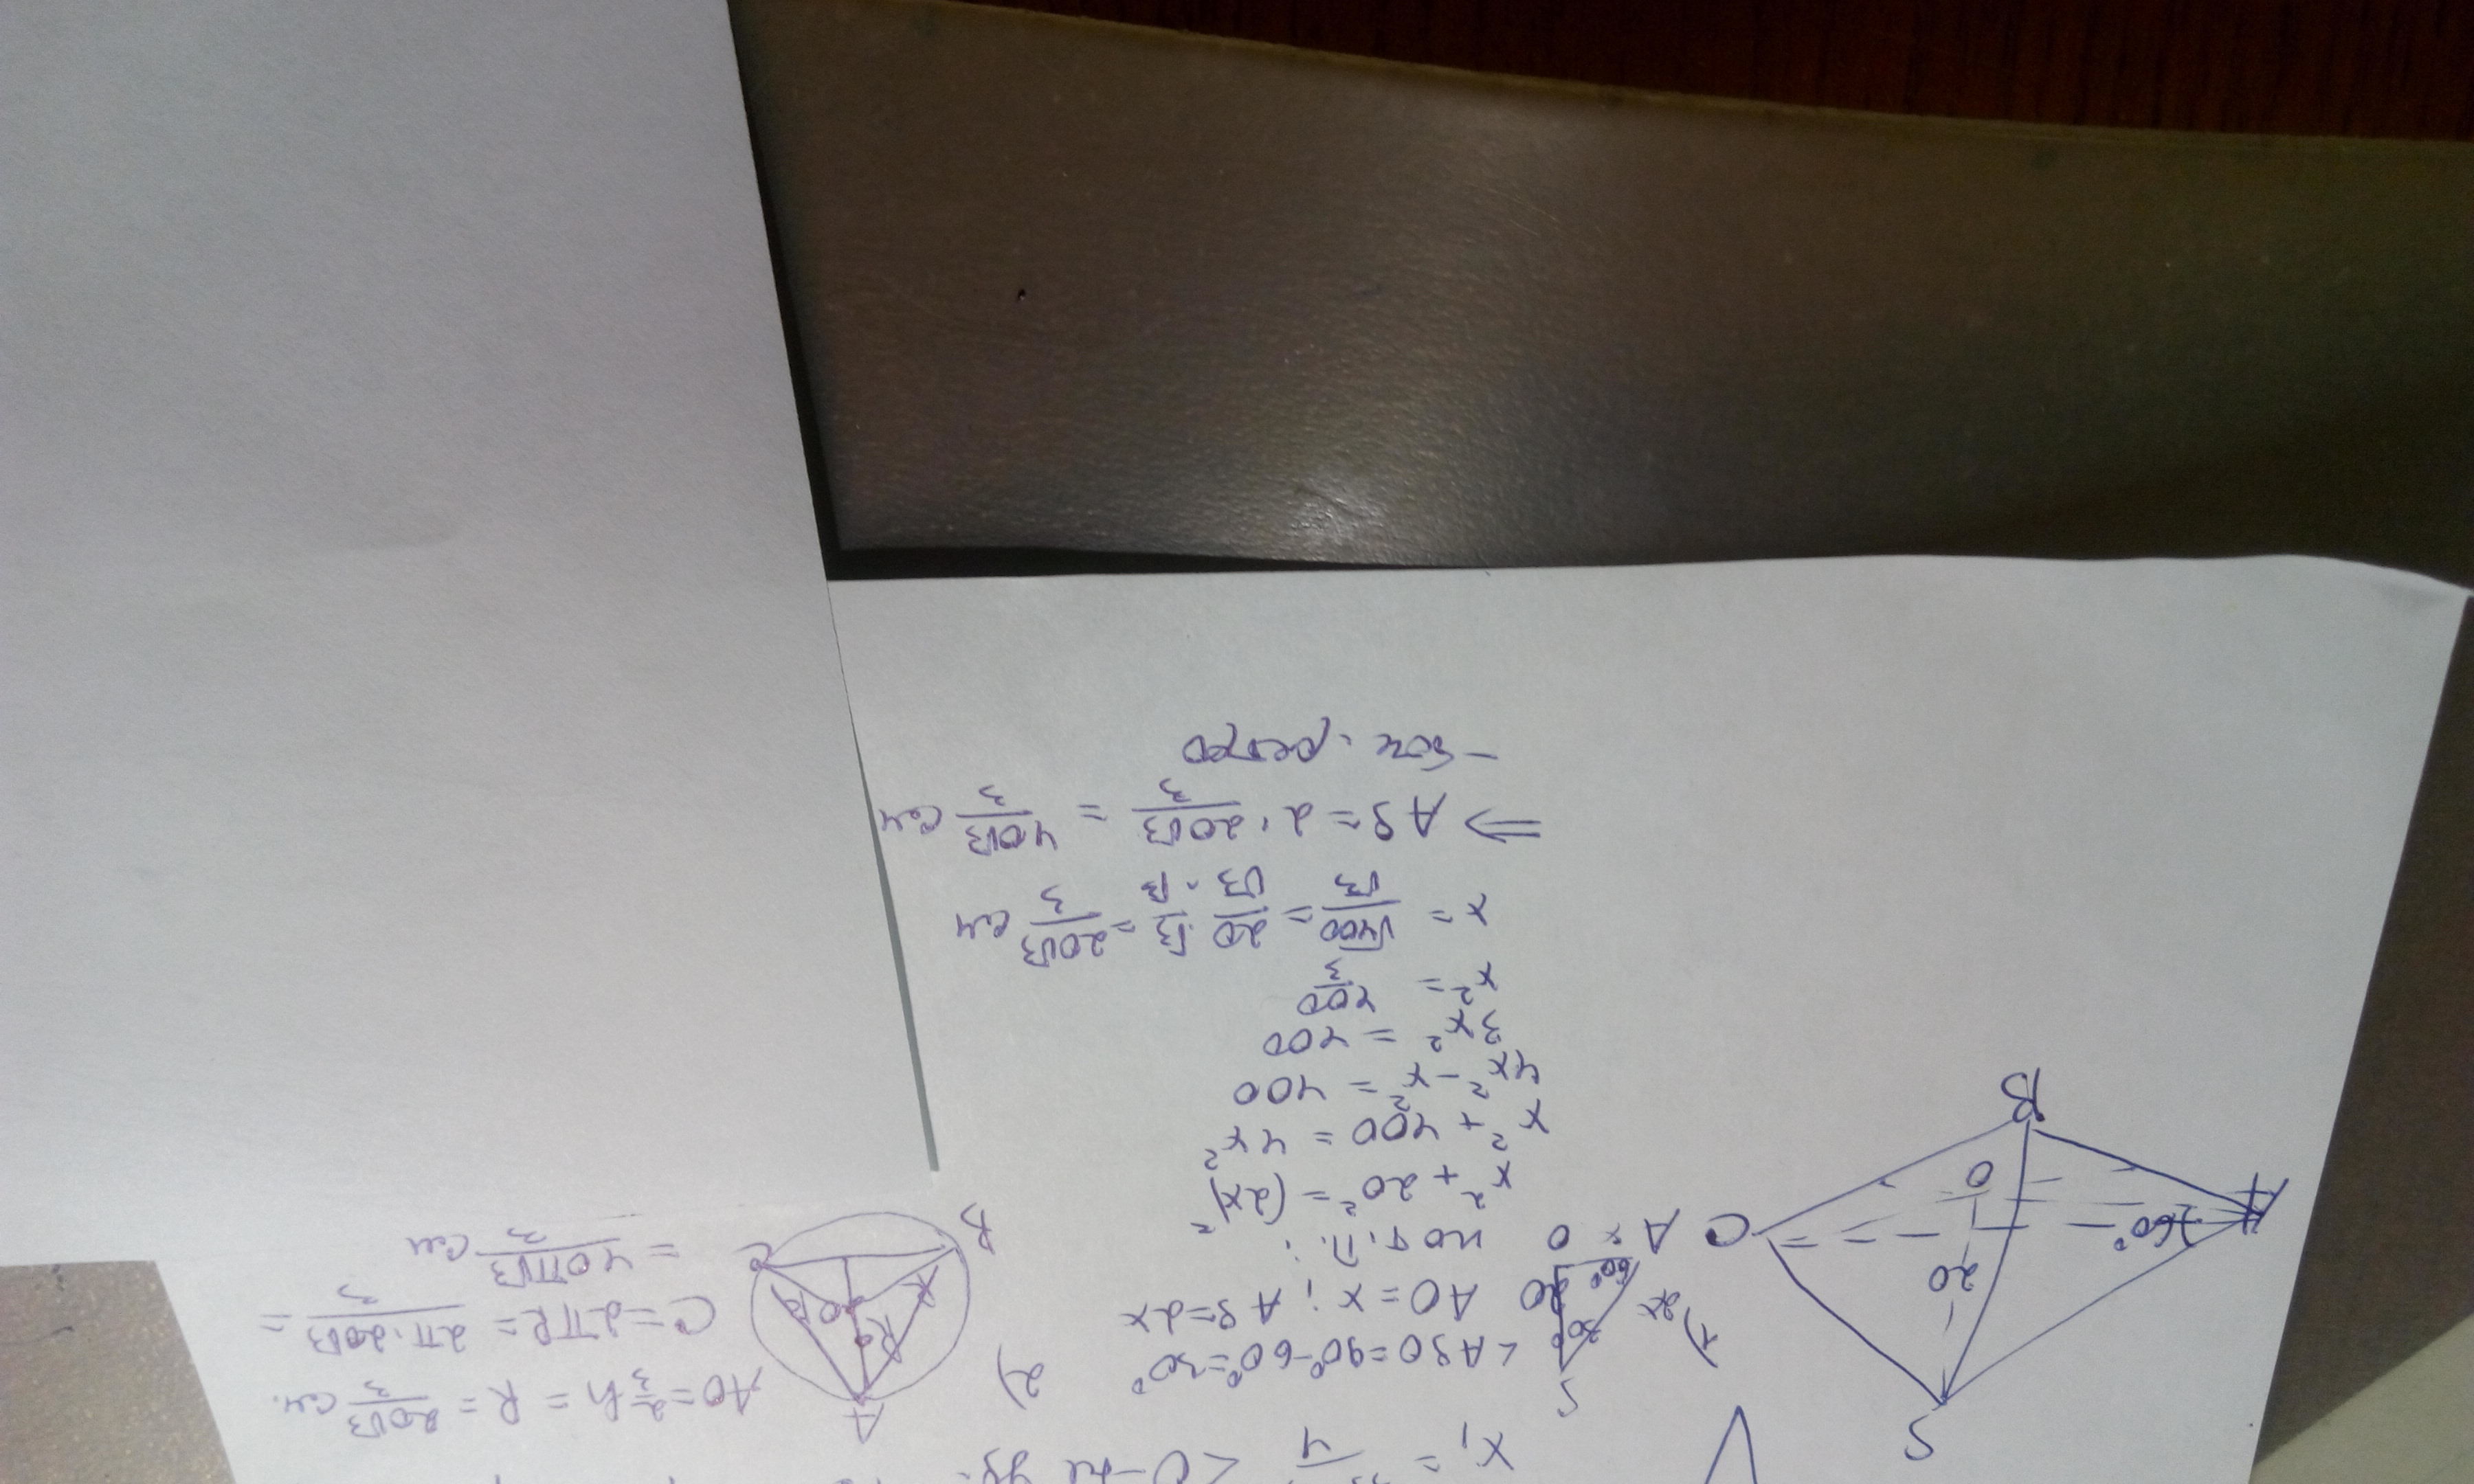 x₁ = — / 4 < 0 - не уд.
S
A
B
C
O
20
60°
1)
S
30°
2x
20
60°
A x O
∠ASO = 90° - 60° = 30°
AO = x; AS = 2x
по т.П.:
x² + 20² = (2x)²
x² + 400 = 4x²
4x² - x² = 400
3x² = 400
x² = 400/3
x = √400/√3 = 20/√3 · √3/√3 = 20√3/3 см
⇒ AS = 2 · 20√3/3 = 40√3/3 см
- бок. ребро
2)
A
B
C
O
R
R
AO = 2/3 h = R = 20√3/3 см.
C = 2πR = 2π·20√3/3 =
= 40π√3/3 см